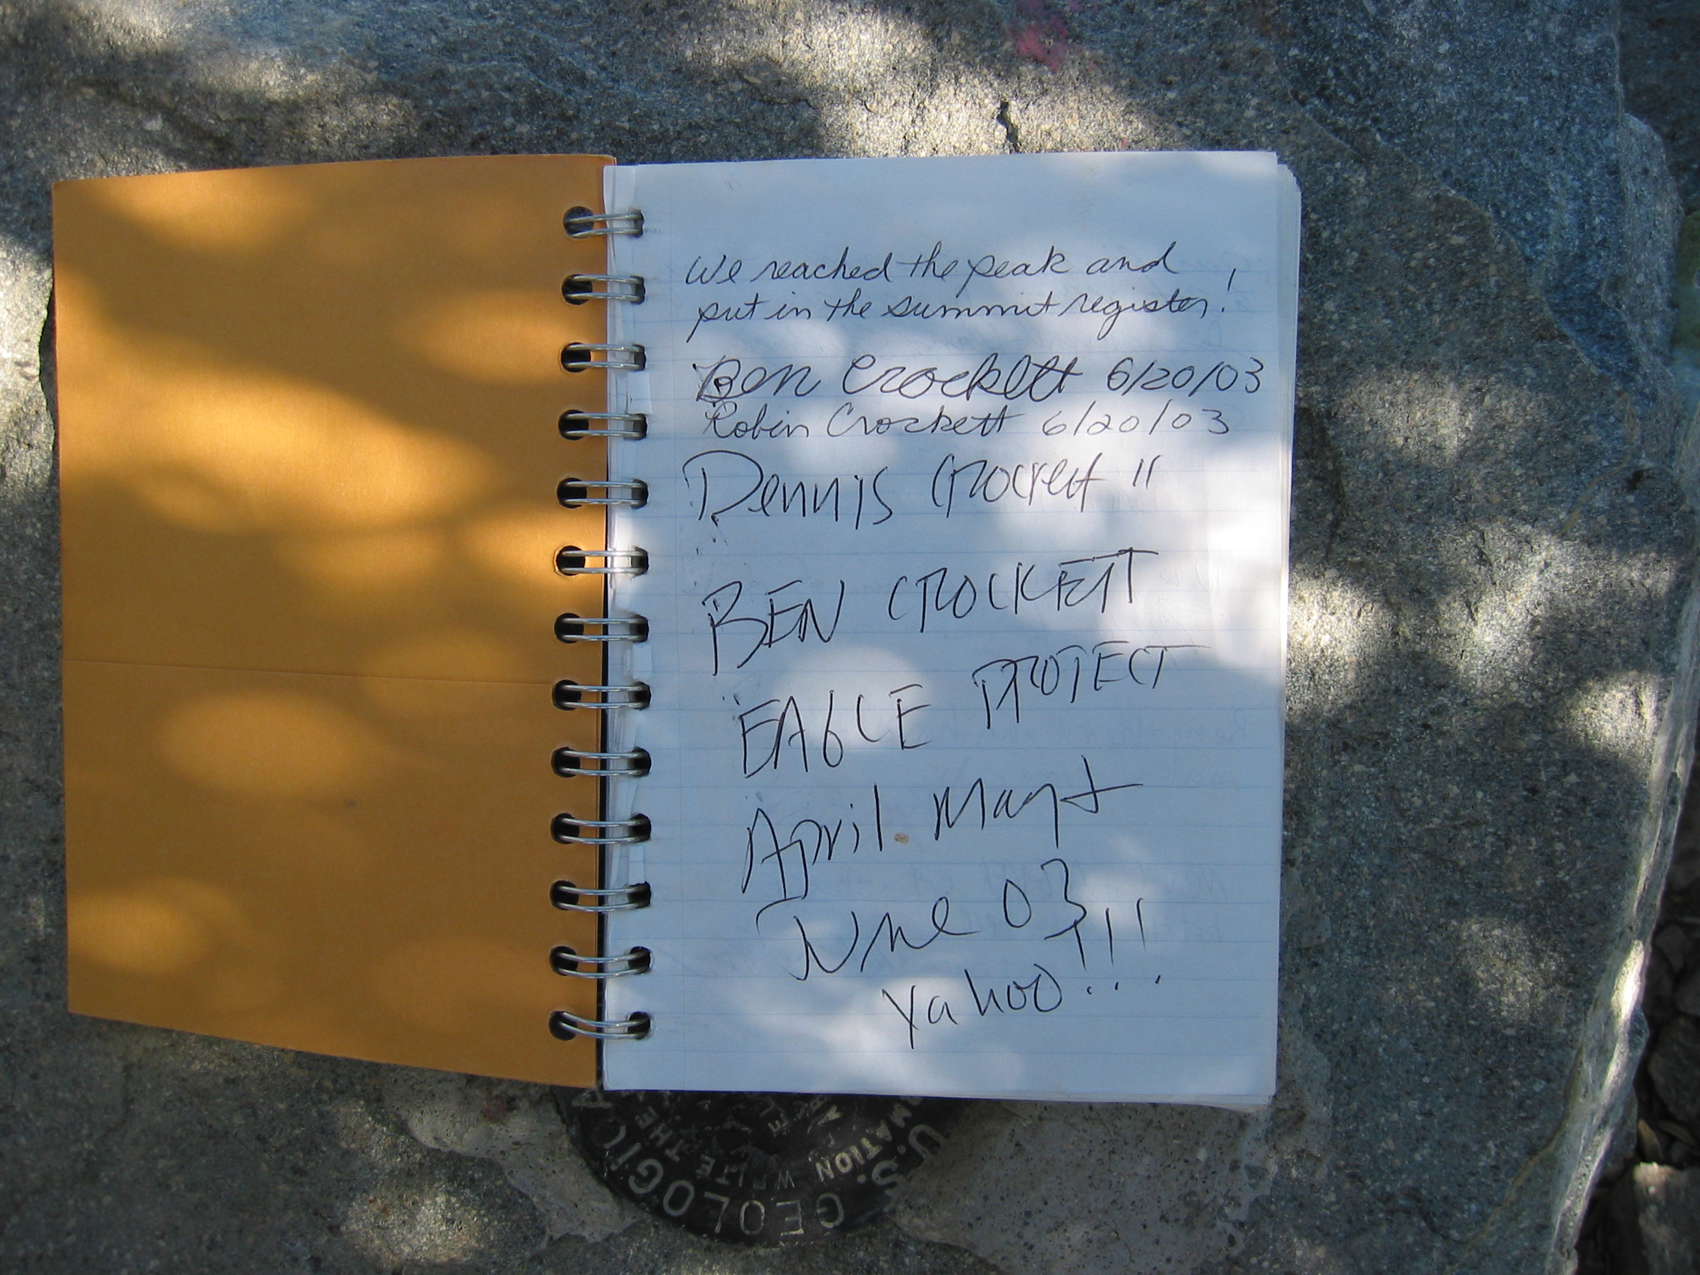 We reached the peak and
put in the summit register!
Ben Crockett 6/20/03
Robin Crockett 6/20/03
Dennis Crockett "
BEN CROCKETT
EAGLE PROJECT
April. May +
June 03
Yahoo!!!
U.S. GEOLOGICA
RMATION WRITE THE